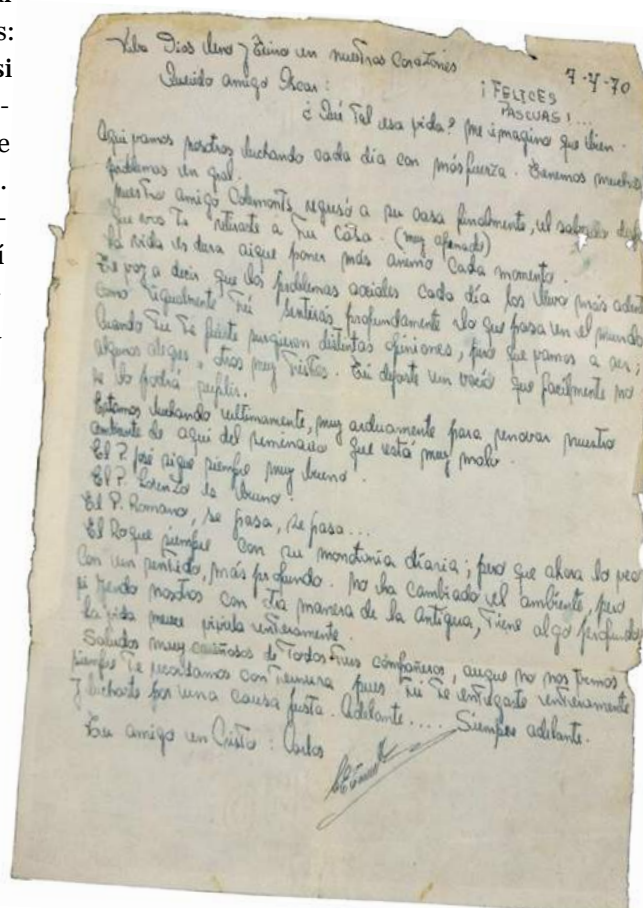 s:
si
-
e
.
-
í
Viba Dios uno y trino en nuestros Corazones
7-4-70
Querido amigo Oscar:
¡FELICES
PASCUAS!...
¿Qué tal esa vida? me imagino que bien.
Aqui vamos nosotros luchando cada día con más fuerza. Tenemos muchos
problemas en gral.
Nuestro amigo regresó a su casa finalmente, el sabado
que vos te retiraste a tu casa. (muy apenado)
La vida es dura aigue poner más animo cada momento.
Te voy a decir que los problemas sociales cada día los llevo más
como igualmente tú sentirás profundamente lo que pasa en el mundo
Cuando tu te fuiste surgieron distintas opiniones, pero que vamos a aser;
algunos alegres y otros muy tristes. Tú dejaste un vacío que facilmente no
se lo podrá suplir.
Estamos luchando ultimamente, muy arduamente para renovar nuestro
ambiente de aqui del seminario que está muy malo.
El P. José sigue siempre muy bueno.
El P. Lorenzo es bueno.
El P. Romano, se pasa, se pasa...
El Roque siempre con su monotonia diaria; pero que ahora lo veo
con un sentido, más profundo. no ha cambiado el ambiente, pero
si yendo nosotros con otra manera de la antigua, tiene algo profundo
la vida merece vivirla enteramente.
Saludos muy cariñosos de todos tus compañeros, auque no nos vemos
siempre te recordamos con ternura pues tú te entregaste enteramente
y luchaste por una causa justa. Adelante..... Siempre adelante.
Tu amigo en Cristo: Carlos